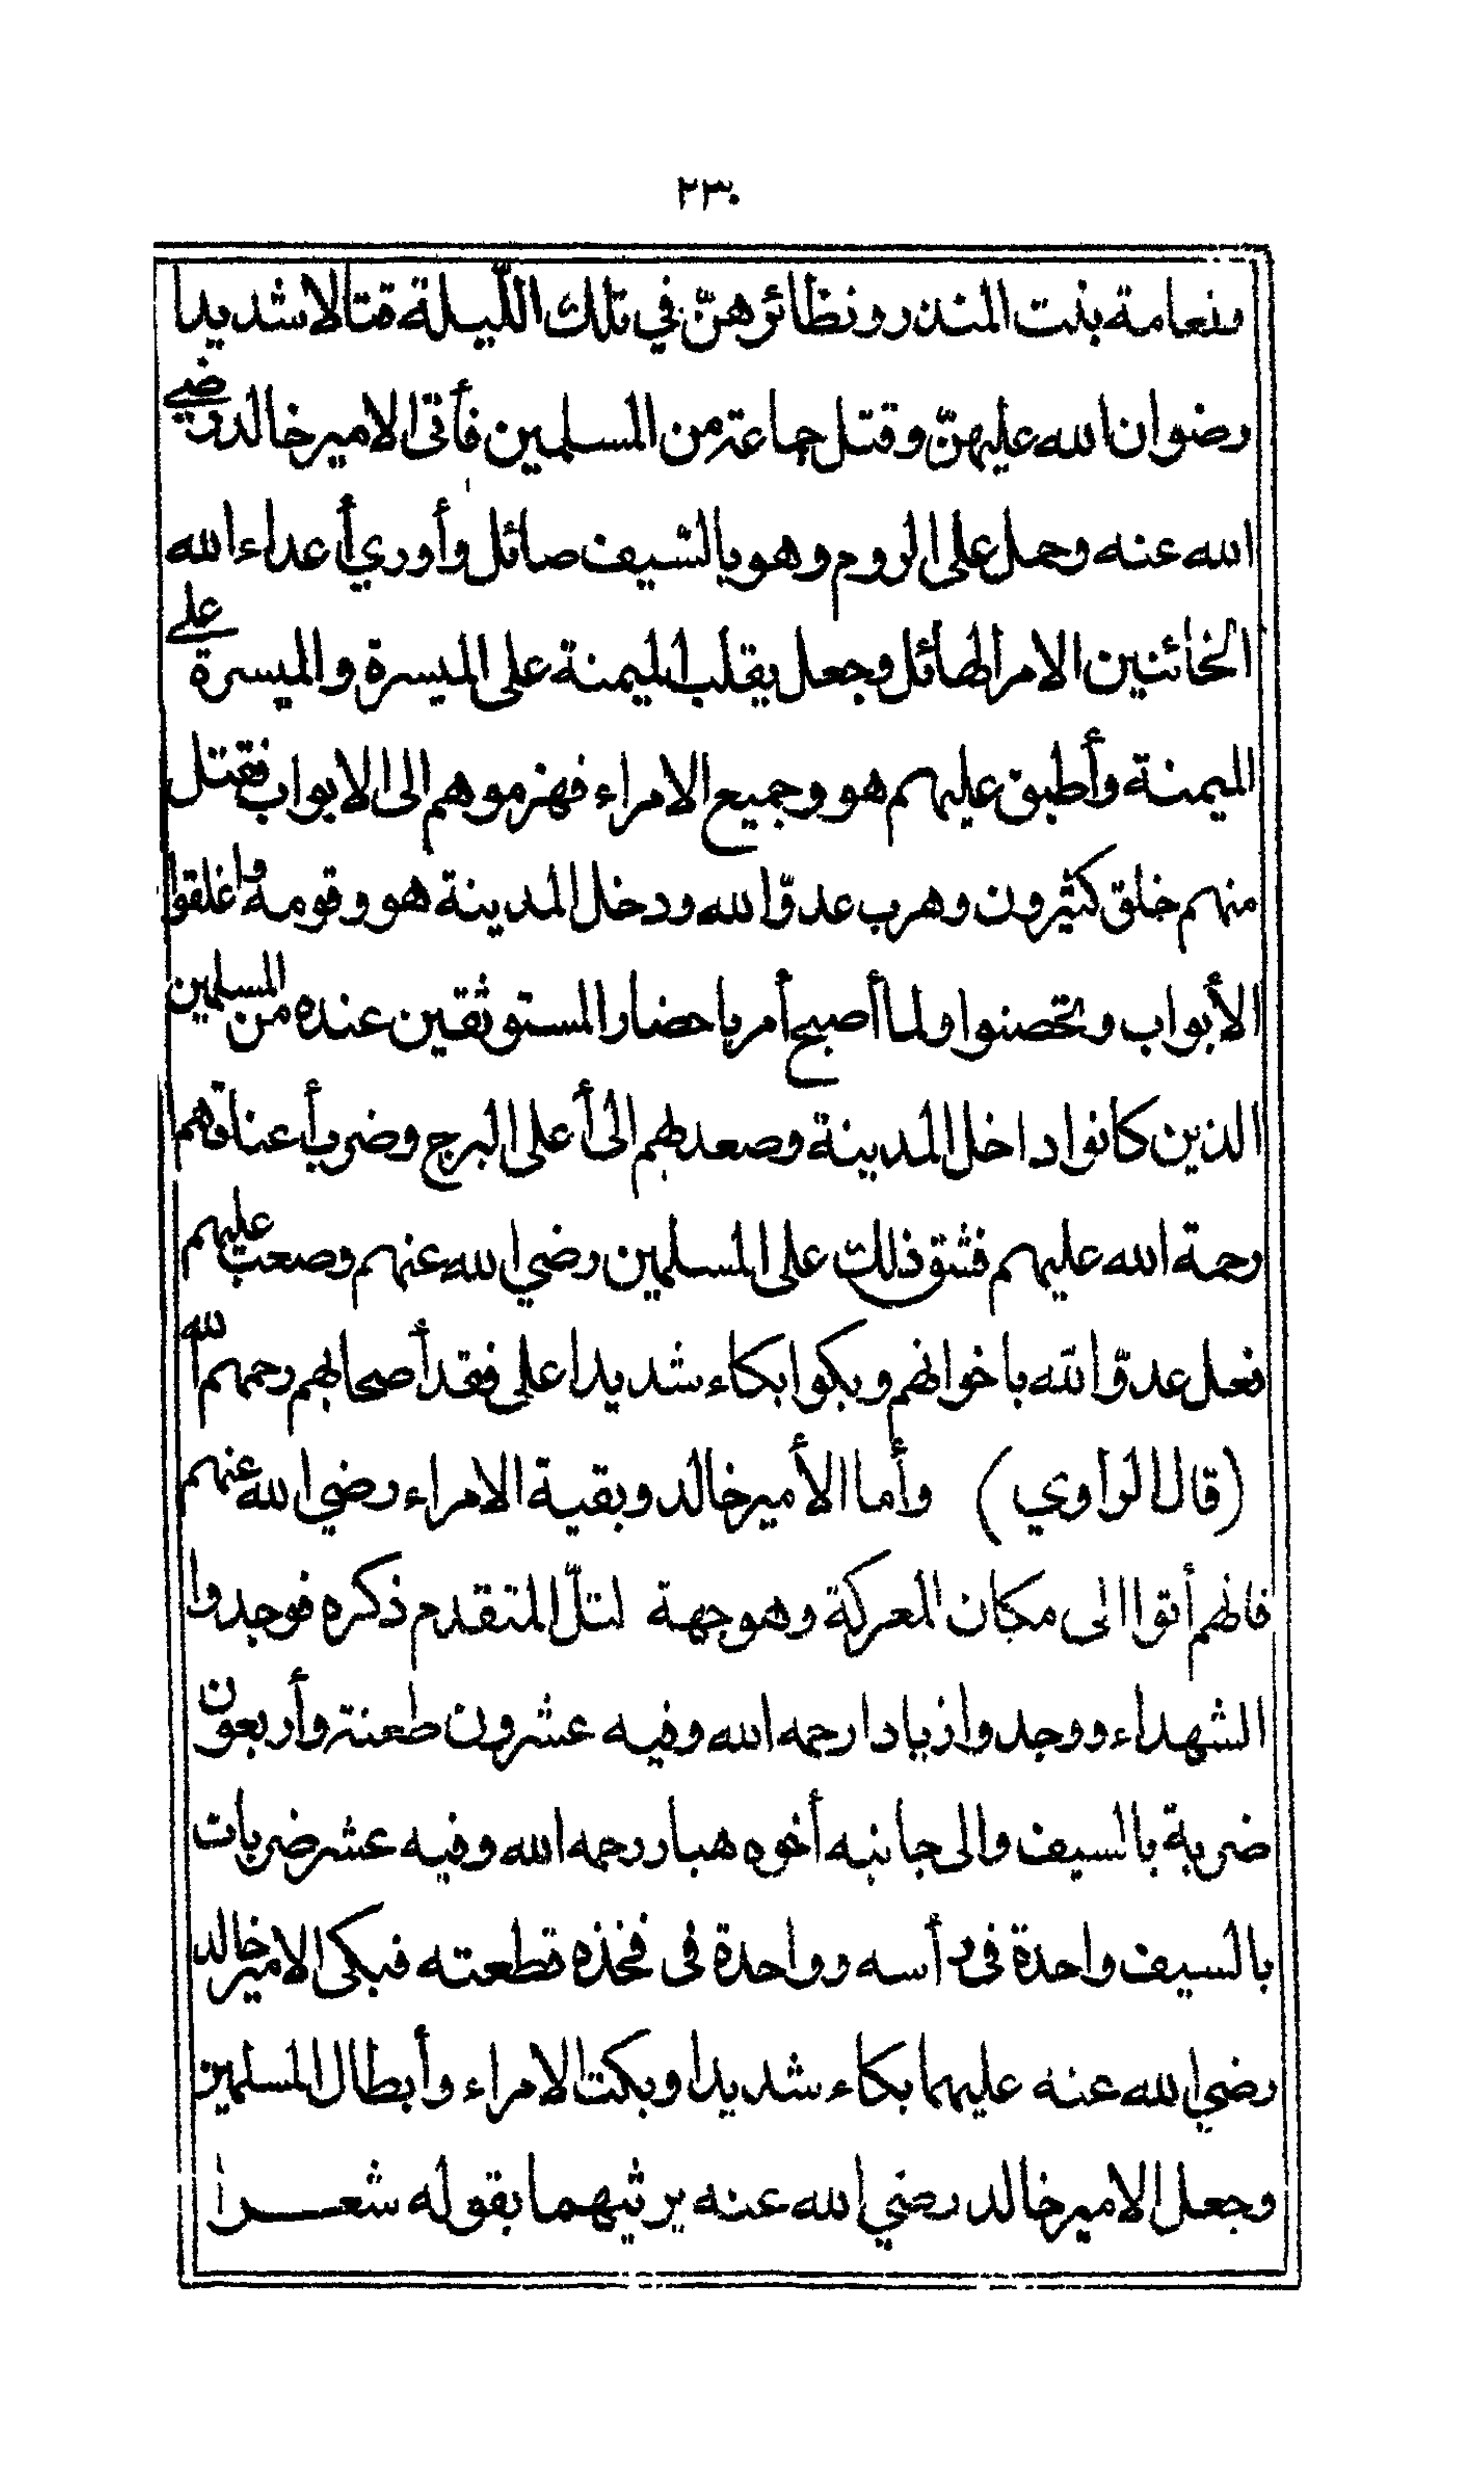 ٢٣٠
ونعامة بنت المنذر ونظائرهنّ في تلك اللّيلة قتالا شديدا
رضوان الله عليهنّ وقتل جماعة من المسلمين فأتى الامير خالد رضي
الله عنه وحمل على الروم وهو بالسّيف صائل وأوري أعداء الله
الخائنين الامر الهائل وجعل يقلب الميمنة على الميسرة والميسرة على
الميمنة وأطبق عليهم هو وجميع الامراء فهزموهم الى الابواب فقتل
منهم خلق كثيرون وهرب عدوّ الله ودخل المدينة هو وقومه وأغلقوا
الأبواب وتحصنوا ولما أصبح أمر باحضار المستوثقين عنده من المسلمين
الذين كانوا داخل المدينة وصعد بهم الى أعلى البرج وضرب أعناقهم
رحمة الله عليهم فشق ذلك على المسلمين رضي الله عنهم وصعب عليهم
فعل عدوّ الله باخوانهم وبكوا بكاء شديدا على فقد أصحابهم رحمهم الله
(قال الراوي) وأما الأمير خالد وبقية الامراء رضي الله عنهم
فانهم أتوا الى مكان المعركة وهو جهة لتلّ المتقدم ذكره فوجدوا
الشهداء ووجدوا زيادا رحمه الله وفيه عشرون طعنة وأربعون
ضربة بالسيف والى جانبه أخوه هبار رحمه الله وفيه عشر ضربات
بالسيف واحدة فى رأسه وواحدة فى فخذه قطعته فبكى الامير خالد
رضي الله عنه عليهما بكاء شديدا وبكت الامراء وأبطال المسلمين
وجعل الامير خالد رضي الله عنه يرثيهما بقوله شعـــرا